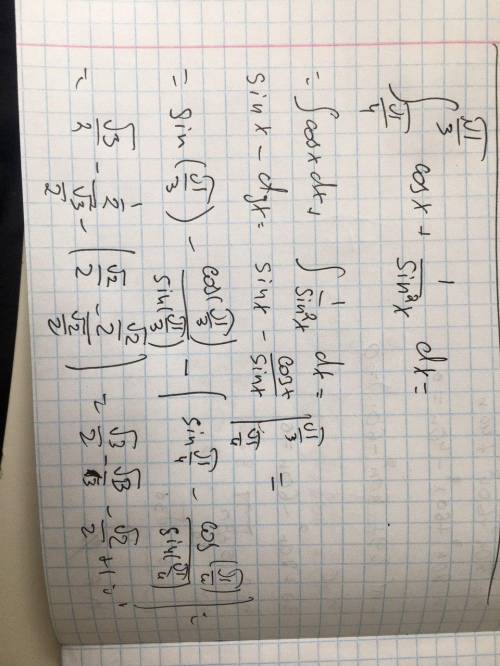 ∫_{π/4}^{π/3} cos x + 1/sin²x dx =
= ∫ cos x dx + ∫ 1/sin²x dx =
sin x - ctg x = sin x - cos x/sin x |_{π/4}^{π/3} =
= sin(π/3) - cos(π/3)/sin(π/3) - (sin π/4 - cos(π/4)/sin(π/4)) =
= √3/2 - (1/2)/(√3/2) - (√2/2 - (√2/2)/(√2/2)) = √3/2 - √3/3 - √2/2 + 1